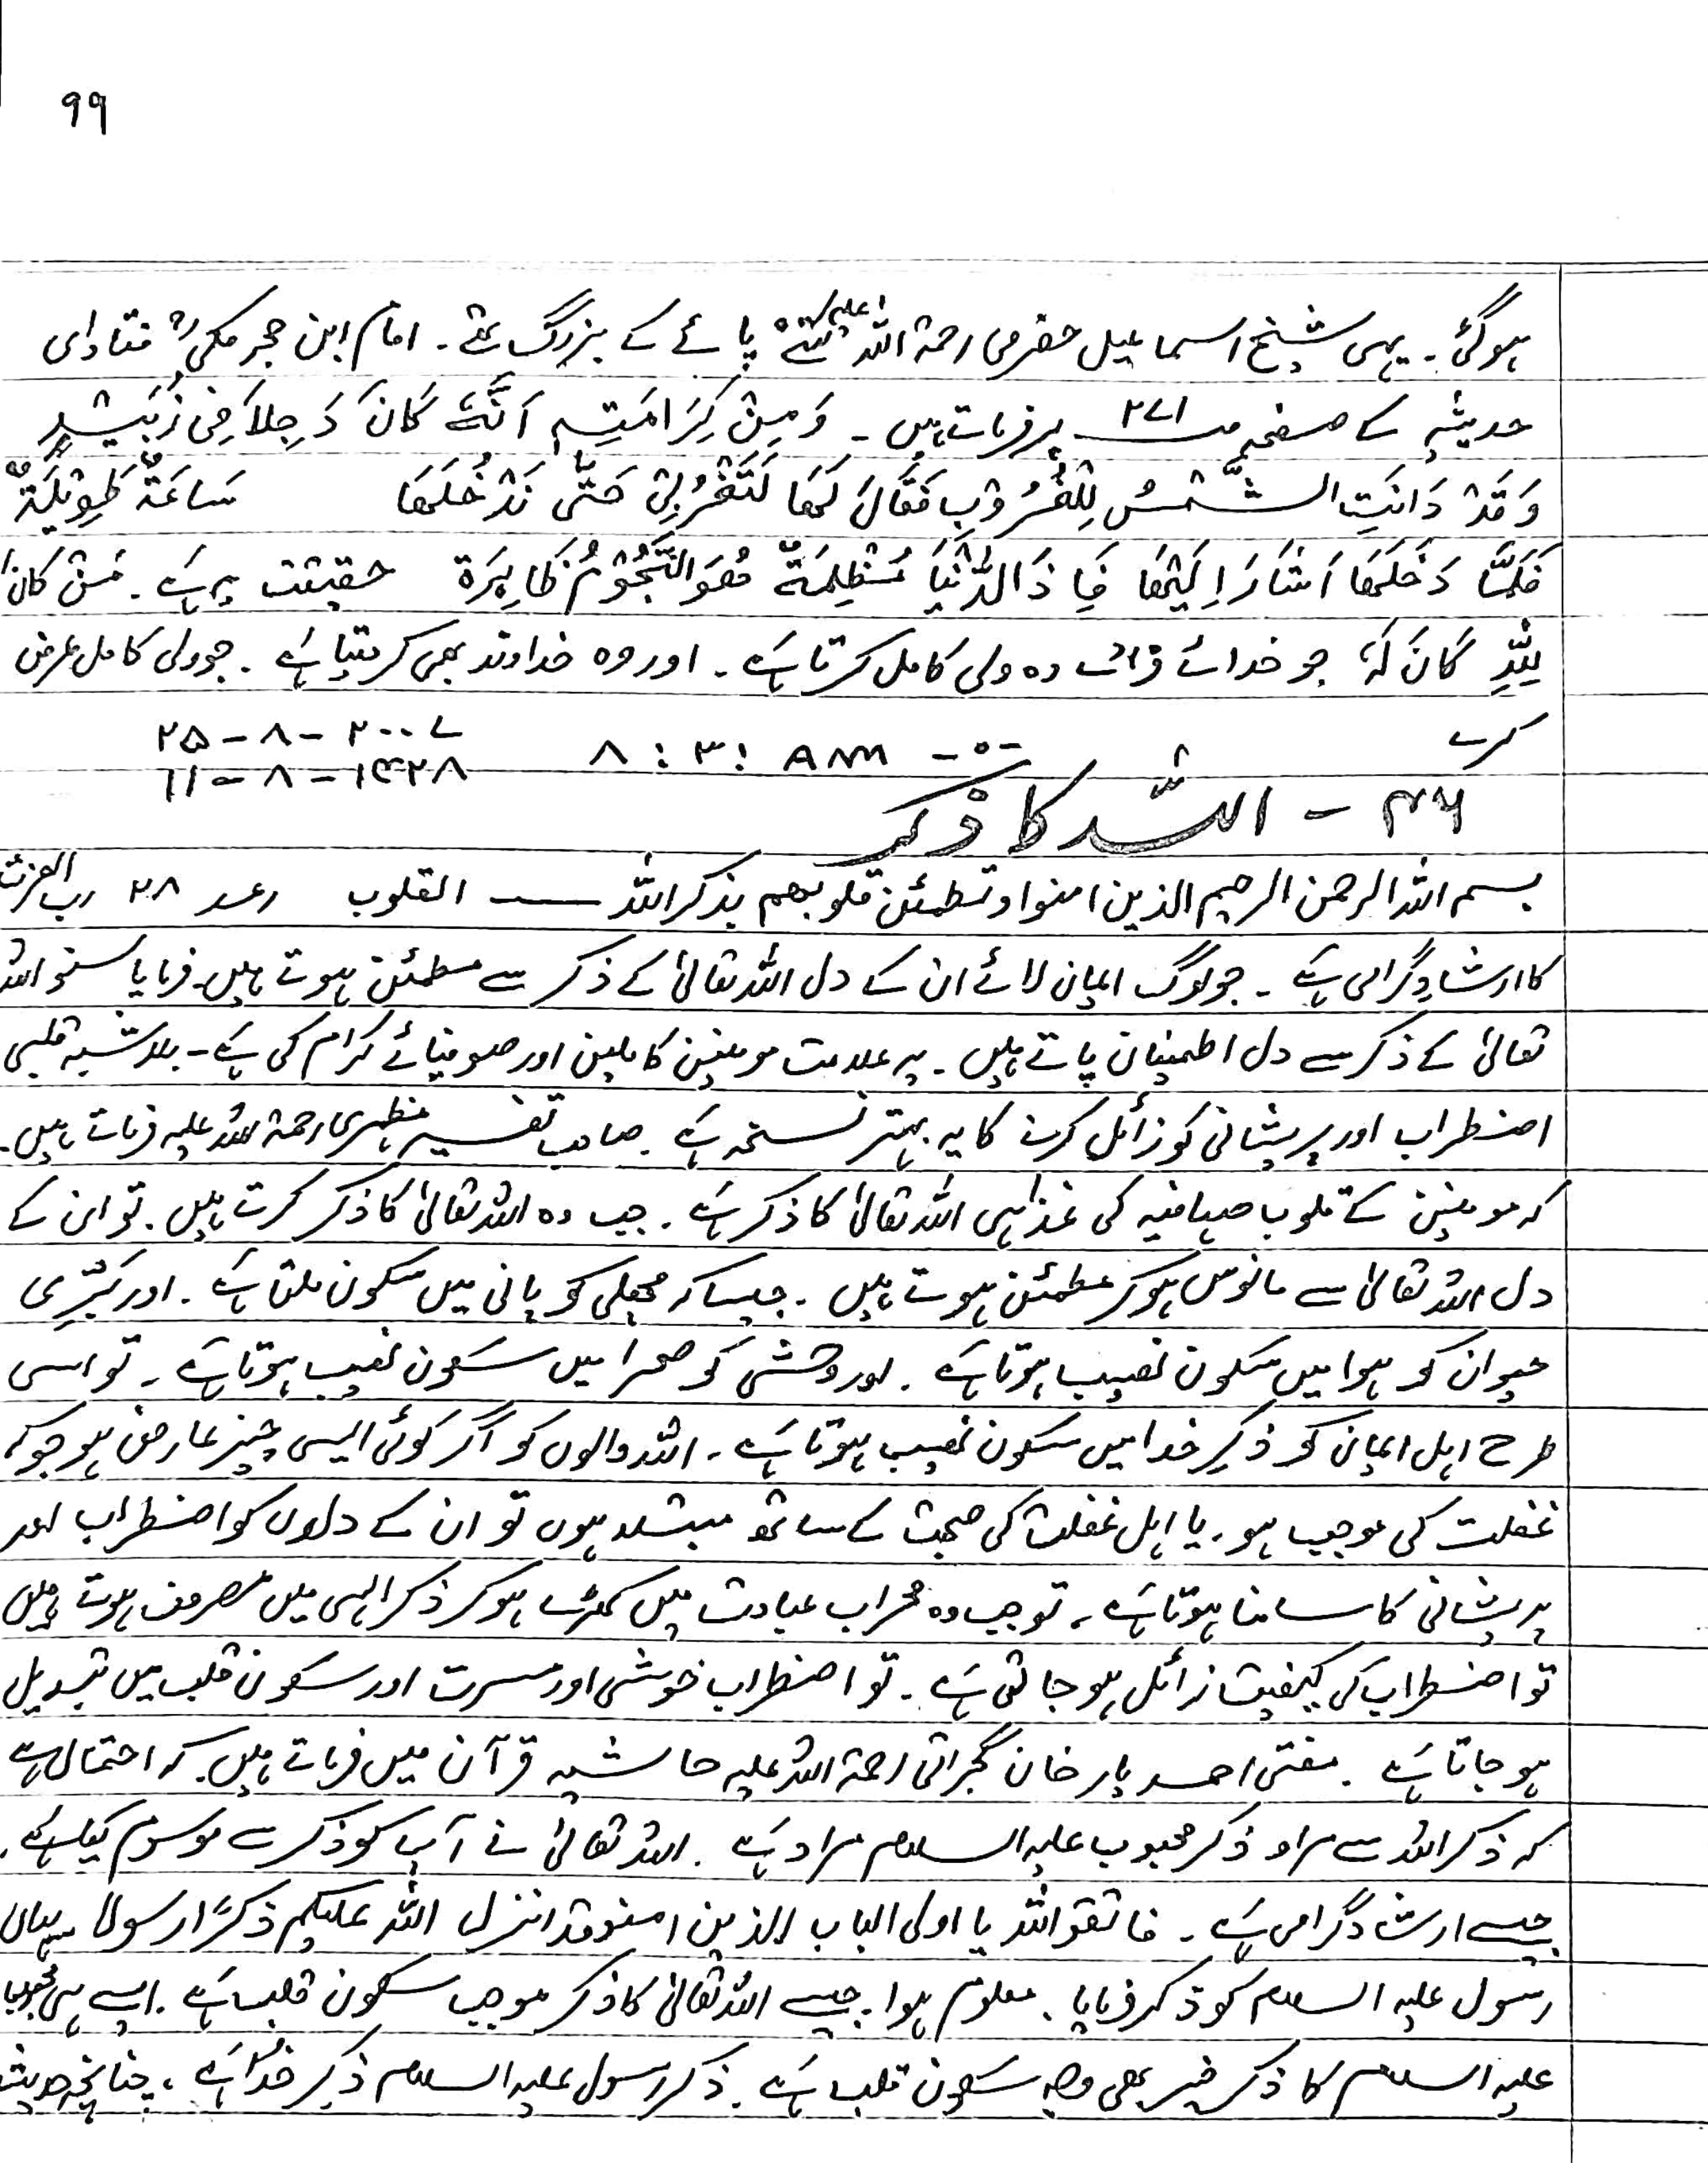 ۹۹
ہوگئی۔ یہی شیخ اسماعیل حضرمی رحمۃ اللہ علیہ اتنے پائے کے بزرگ تھے۔ امام ابن حجر مکیؒ فتاوٰی
حدیثیہ کے صفحہ ۲۷۱ پر فرماتے ہیں۔ وَمِنْ كِرَامَتِهٖ اَنَّهٗ كَانَ دَخِلاً فِی زُبَیْدٍ
وَقَدْ دَانَتِ الشَّمْسُ لِلْغُرُوْبِ فَقَالَ لَهَا لَتَغْرُبِیْ حَتّٰی نَدْخُلَهَا سَاعَةً طَوِیْلَةً
فَلَمَّا دَخَلَهَا اَشَارَ اِلَیْهَا فَاِذَا الدُّنْیَا مُظْلِمَةٌ وَالنُّجُوْمُ ظَاہِرَة حقیقت یہ ہے۔ مَنْ کَانَ
لِلّٰهِ کَانَ لَهٗ جو خدائے فرمائے وہ ولی کامل کرتا ہے۔ اور وہ خداوند بھی کر دیتا ہے۔ جو ولی کامل عرض
کرے
۸:۳۱ AM ۲۵-۸-۲۰۰۷
۱۱-۸-۱۴۲۸
۴۶ - اللہ کا ذکر
بسم اللہ الرحمن الرحیم الذین امنوا وتطمئن قلوبھم بذکر اللہ ــــ القلوب رعد ۲۸ رب العزت
کا ارشاد گرامی ہے۔ جو لوگ ایمان لائے ان کے دل اللہ تعالیٰ کے ذکر سے مطمئن ہوتے ہیں۔ فرمایا سنو اللہ
تعالیٰ کے ذکر سے دل اطمینان پاتے ہیں۔ یہ علامت مومنین کاملین اور صوفیائے کرام کی ہے۔ بلاشبہ قلبی
اضطراب اور پریشانی کو زائل کرنے کا یہ بہتر نسخہ ہے۔ صاحب تفسیر مظہری رحمۃ اللہ علیہ فرماتے ہیں۔
کہ مومنین کے قلوب صافیہ کی غذا ہی اللہ تعالیٰ کا ذکر ہے۔ جب وہ اللہ تعالیٰ کا ذکر کرتے ہیں۔ تو ان کے
دل اللہ تعالیٰ سے مانوس ہوکر مطمئن ہوتے ہیں۔ جیسا کہ مچھلی کو پانی میں سکون ملتا ہے۔ اور بَرِّی
حیوان کو ہوا میں سکون نصیب ہوتا ہے۔ اور وحشی کو صحرا میں سکون نصیب ہوتا ہے۔ تو اسی
طرح اہل ایمان کو ذکرِ خدا میں سکون نصیب ہوتا ہے۔ اللہ والوں کو اگر کوئی ایسی چیز عارض ہو جو کہ
غفلت کی موجب ہو۔ یا اہل غفلت کی صحبت کے ساتھ مبتلا ہوں تو ان کے دلوں کو اضطراب اور
پریشانی کا سامنا ہوتا ہے۔ تو جب وہ محراب عبادت میں کھڑے ہوکر ذکر الہی میں مصروف ہوتے ہیں
تو اضطراب کی کیفیت زائل ہو جاتی ہے۔ تو اضطراب خوشی اور مسرت اور سکون قلب میں تبدیل
ہو جاتا ہے۔ مفتی احمد یار خان گجراتی رحمۃ اللہ علیہ حاشیہ قرآن میں فرماتے ہیں۔ کہ احتمال ہے
کہ ذکر اللہ سے مراد ذکر محبوب علیہ السلام مراد ہے۔ اللہ تعالیٰ نے آپ کو ذکر سے موسوم کیا ہے۔
جیسے ارشاد گرامی ہے۔ فاتقو اللہ یا اولی الباب الذین امنو قد انزل اللہ علیکم ذکرًا رسولا یہاں
رسول علیہ السلام کو ذکر فرمایا۔ معلوم ہوا۔ جیسے اللہ تعالیٰ کا ذکر موجب سکون قلب ہے۔ ایسے ہی محبوب
علیہ السلام کا ذکر خیر بھی وجہ سکون قلب ہے۔ ذکر رسول علیہ السلام ذکرِ خدا ہے، چنانچہ حدیث